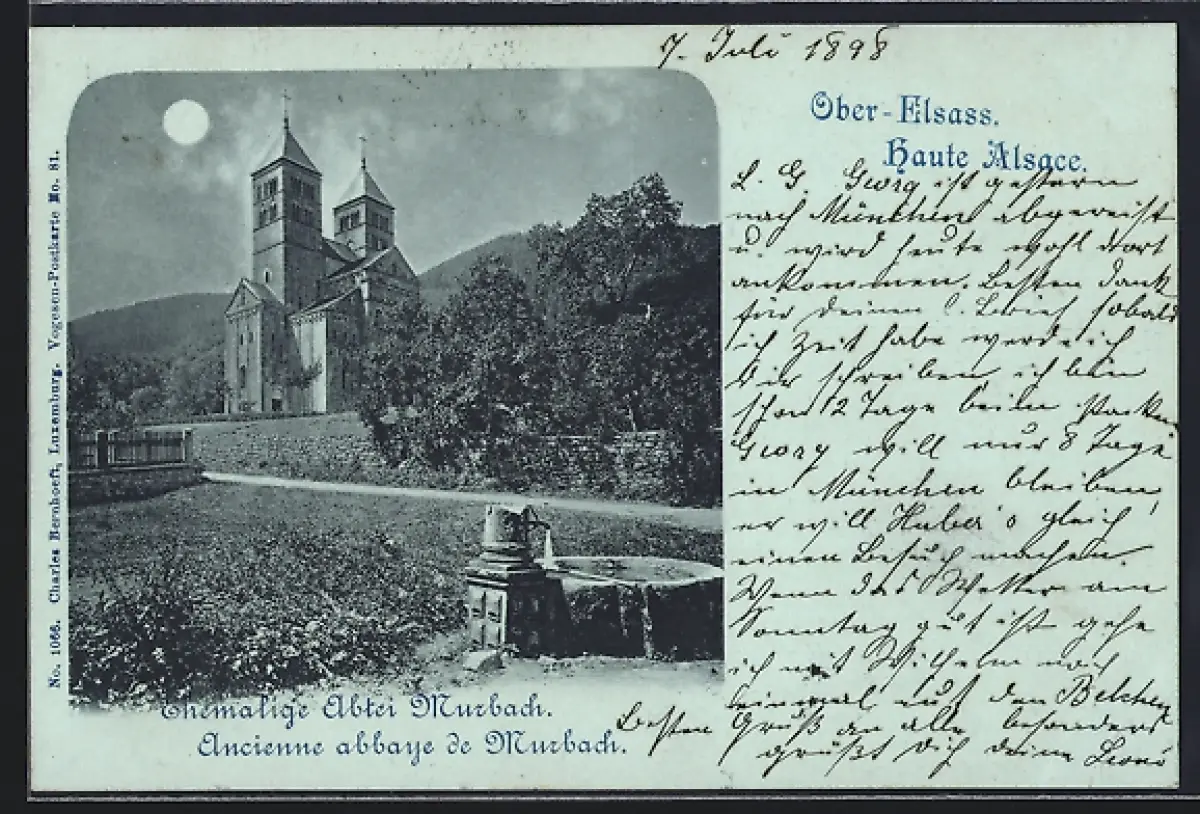 7. Juli 1898
Ober-Elsass.
Haute Alsace.
L. G. Georg ist gestern
nach München abgereist
u. wird heute wohl dort
ankommen. Besten Dank
für Deinen l. Brief sobald
ich Zeit habe werde ich
Dir schreiben, ich bin
schon 2 Tage beim packen
Georg will nur 8 Tage
in München bleiben,
er will Huber's gleich
einen Besuch machen.
Wenn das Wetter am
Sonntag gut ist gehe
ich mit Wilhelm noch
einmal auf den Belchen
Besten Gruß an alle besonders
grüßt Dich deine
Ehemalige Abtei Murbach.
Ancienne abbaye de Murbach.
No. 1066. Charles Bernhoeft, Luxemburg. Vogesen-Postkarte No. 81.